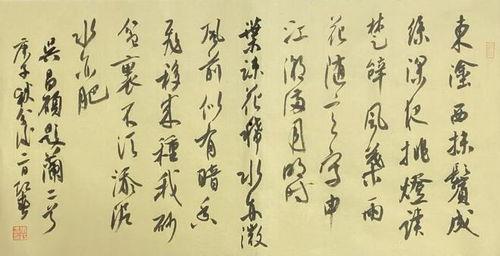 東塗西抹鬢成
絲深夜挑燈讀
楚辭風葉雨
花随意寫申
江潮滿月明時
葉疎花稀水亦微
風前似有暗香
飛移来種我砂
盆裏不須添泥
水亦肥
吳昌碩題蘭二首
庚子秋